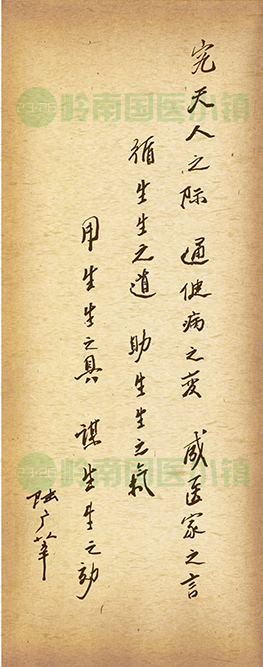 究天人之际 通健病之变 成医家之言
循生生之道 助生生之气
用生生之具 谋生生之效
陆广莘
23:26 岭南国医小镇
23:26 岭南国医小镇